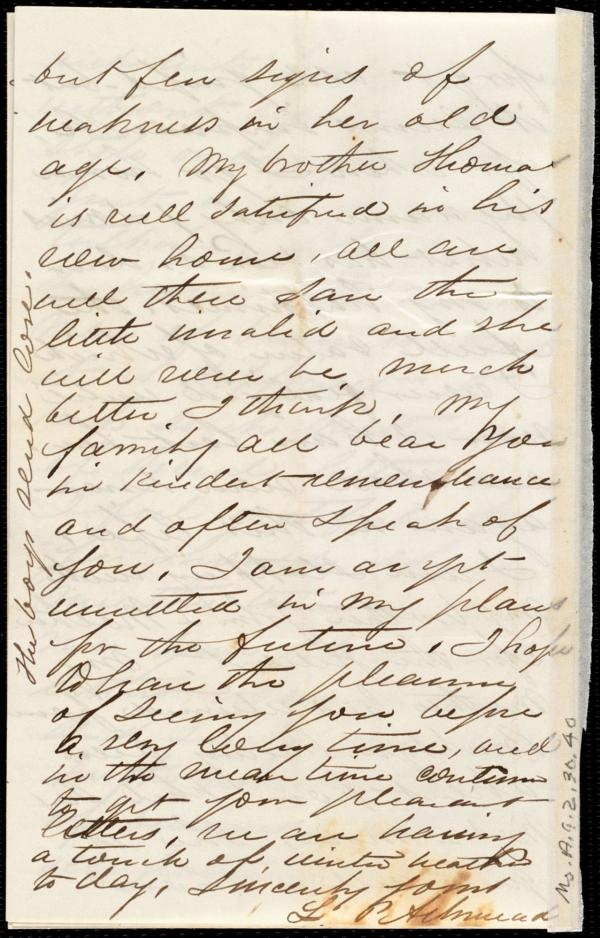 but few signs of
weakness in her old
age. My brother Thomas
is well satisfied in his
new home, all are
well there save the
little invalid and she
will never be much
better I think, My
family all bear you
in kindest remembrance
and often speak of
you, I am as yet
unsettled in my plans
for the future, I hope
to have the pleasure
of seeing you before
a very long time, and
in the mean time continue
to get your pleasant
letters, we are having
a touch of winter weather
to day, Sincerely yours
L. P.
The boys send love.
Ms. A. 9. 2. 30. 40